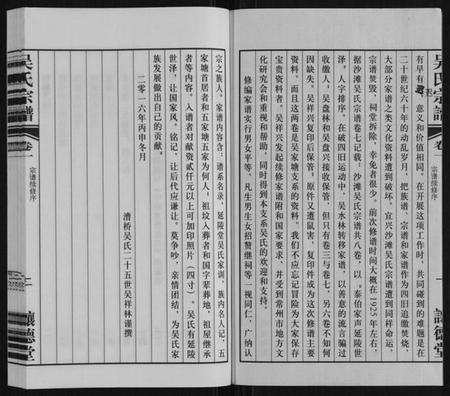 吴氏宗谱
卷一
宗谱续修序
让德堂
有早有迟，意义和价值相同，在开展这项工作时，共同碰到的难题是在
二十世纪六十年的动乱岁月，把族谱、宗谱和家谱作为四旧追缴焚烧，
大部分家谱之类文化资料遭到破坏，宜兴沙滩吴氏宗谱遭到同样命运，
宗谱焚毁，祠堂拆除，幸免者很少。前次修谱时间大概在1925年左右，
据沙滩吴氏宗谱卷七记载，沙滩吴氏宗谱共八卷，以：泰伯家声延陵世
泽，人字排序。在破四旧运动中，吴水林转移家谱，以善意的流言骗过
收缴人，吴盘林和吴盘兴接收保管，但只有卷三与卷七，另六卷不知何
因缺失。吴祥兴复印后保管，原件又遭鼠害，复印件成为这次修谱主要
资料。而且这两卷是吴家塘支系的资料，我们不应忘记冒险为大家保存
宝贵资料者。吴祥兴发起续修家谱附和国家要求，并受到常州市地方文
化研究会和重视和帮助，同时得到本支系吴氏的欢迎和支持。
修编家谱实行男女平等，凡生男生女招赘继祠等一视同仁，广纳认
宗之族人。家谱内容含：谱系名录，延陵堂吴氏家训，族内名人记，五
家塘首居者和五家塘五家为何人，祖坟入葬者和国字辈葬地，祖屋继承
者等内容。入谱者对献资贰仟元以上可加印照片（四寸）。吴氏有延陵
世泽，让国家风。铭记，让后代应谦让。莫争吵，亲情团结，为吴氏家
族发展做出自己的贡献。
二零一六年丙申冬月
漕桥吴氏二十五世吴祥林谨撰
吴氏宗谱
卷一
宗谱续修序
让德堂